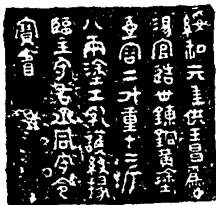 綏和元年供工昌為
湯官造卅湅銅黃塗
壺容二斗重十二斤
八兩涂工乳護級掾
臨主守右丞同守令
寶省